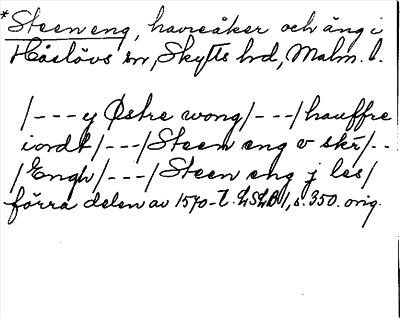 *Steen eng, havreåker och äng i
Håslövs sn, Skytts hd, Malm. l.
/---y Østre wong/---/hauffre
iordt/---/Steen eng v skr/--
/Engh/---/Steen eng j les/
förra delen av 1570-t. LSLB 1, s. 350. orig.